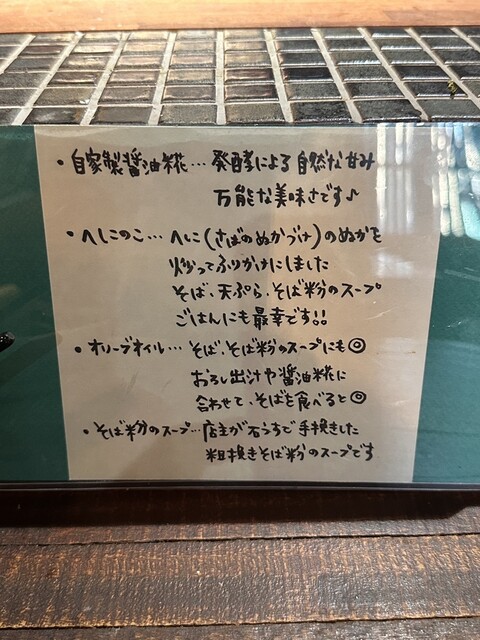 ・自家製醤油糀…発酵による自然な甘み
万能な美味さです♪
・へしこのこ…へしこ(さばのぬかづけ)のぬかを
炒ってふりかけにしました
そば、天ぷら、そば粉のスープ
ごはんにも最幸です!!
・オリーブオイル…そば、そば粉のスープにも◎
おろし出汁や醤油糀に
合わせて、そばを食べると◎
・そば粉のスープ…店主が石うすで手挽きした
粗挽きそば粉のスープです